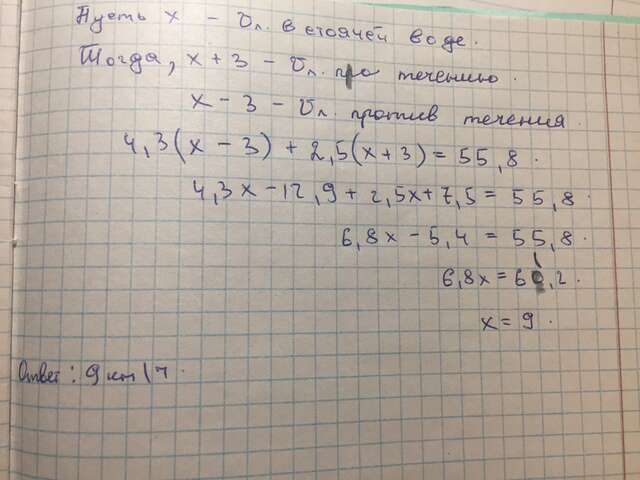 Пусть x - vл. в стоячей воде.
Тогда, x+3 - vл. по течению.
x - 3 - vл. против течения.
4,3(x - 3) + 2,5(x+3) = 55,8.
4,3x - 12,9 + 2,5x + 7,5 = 55,8.
6,8x - 5,4 = 55,8.
6,8x = 61,2.
x = 9.
Ответ: 9 км/ч.